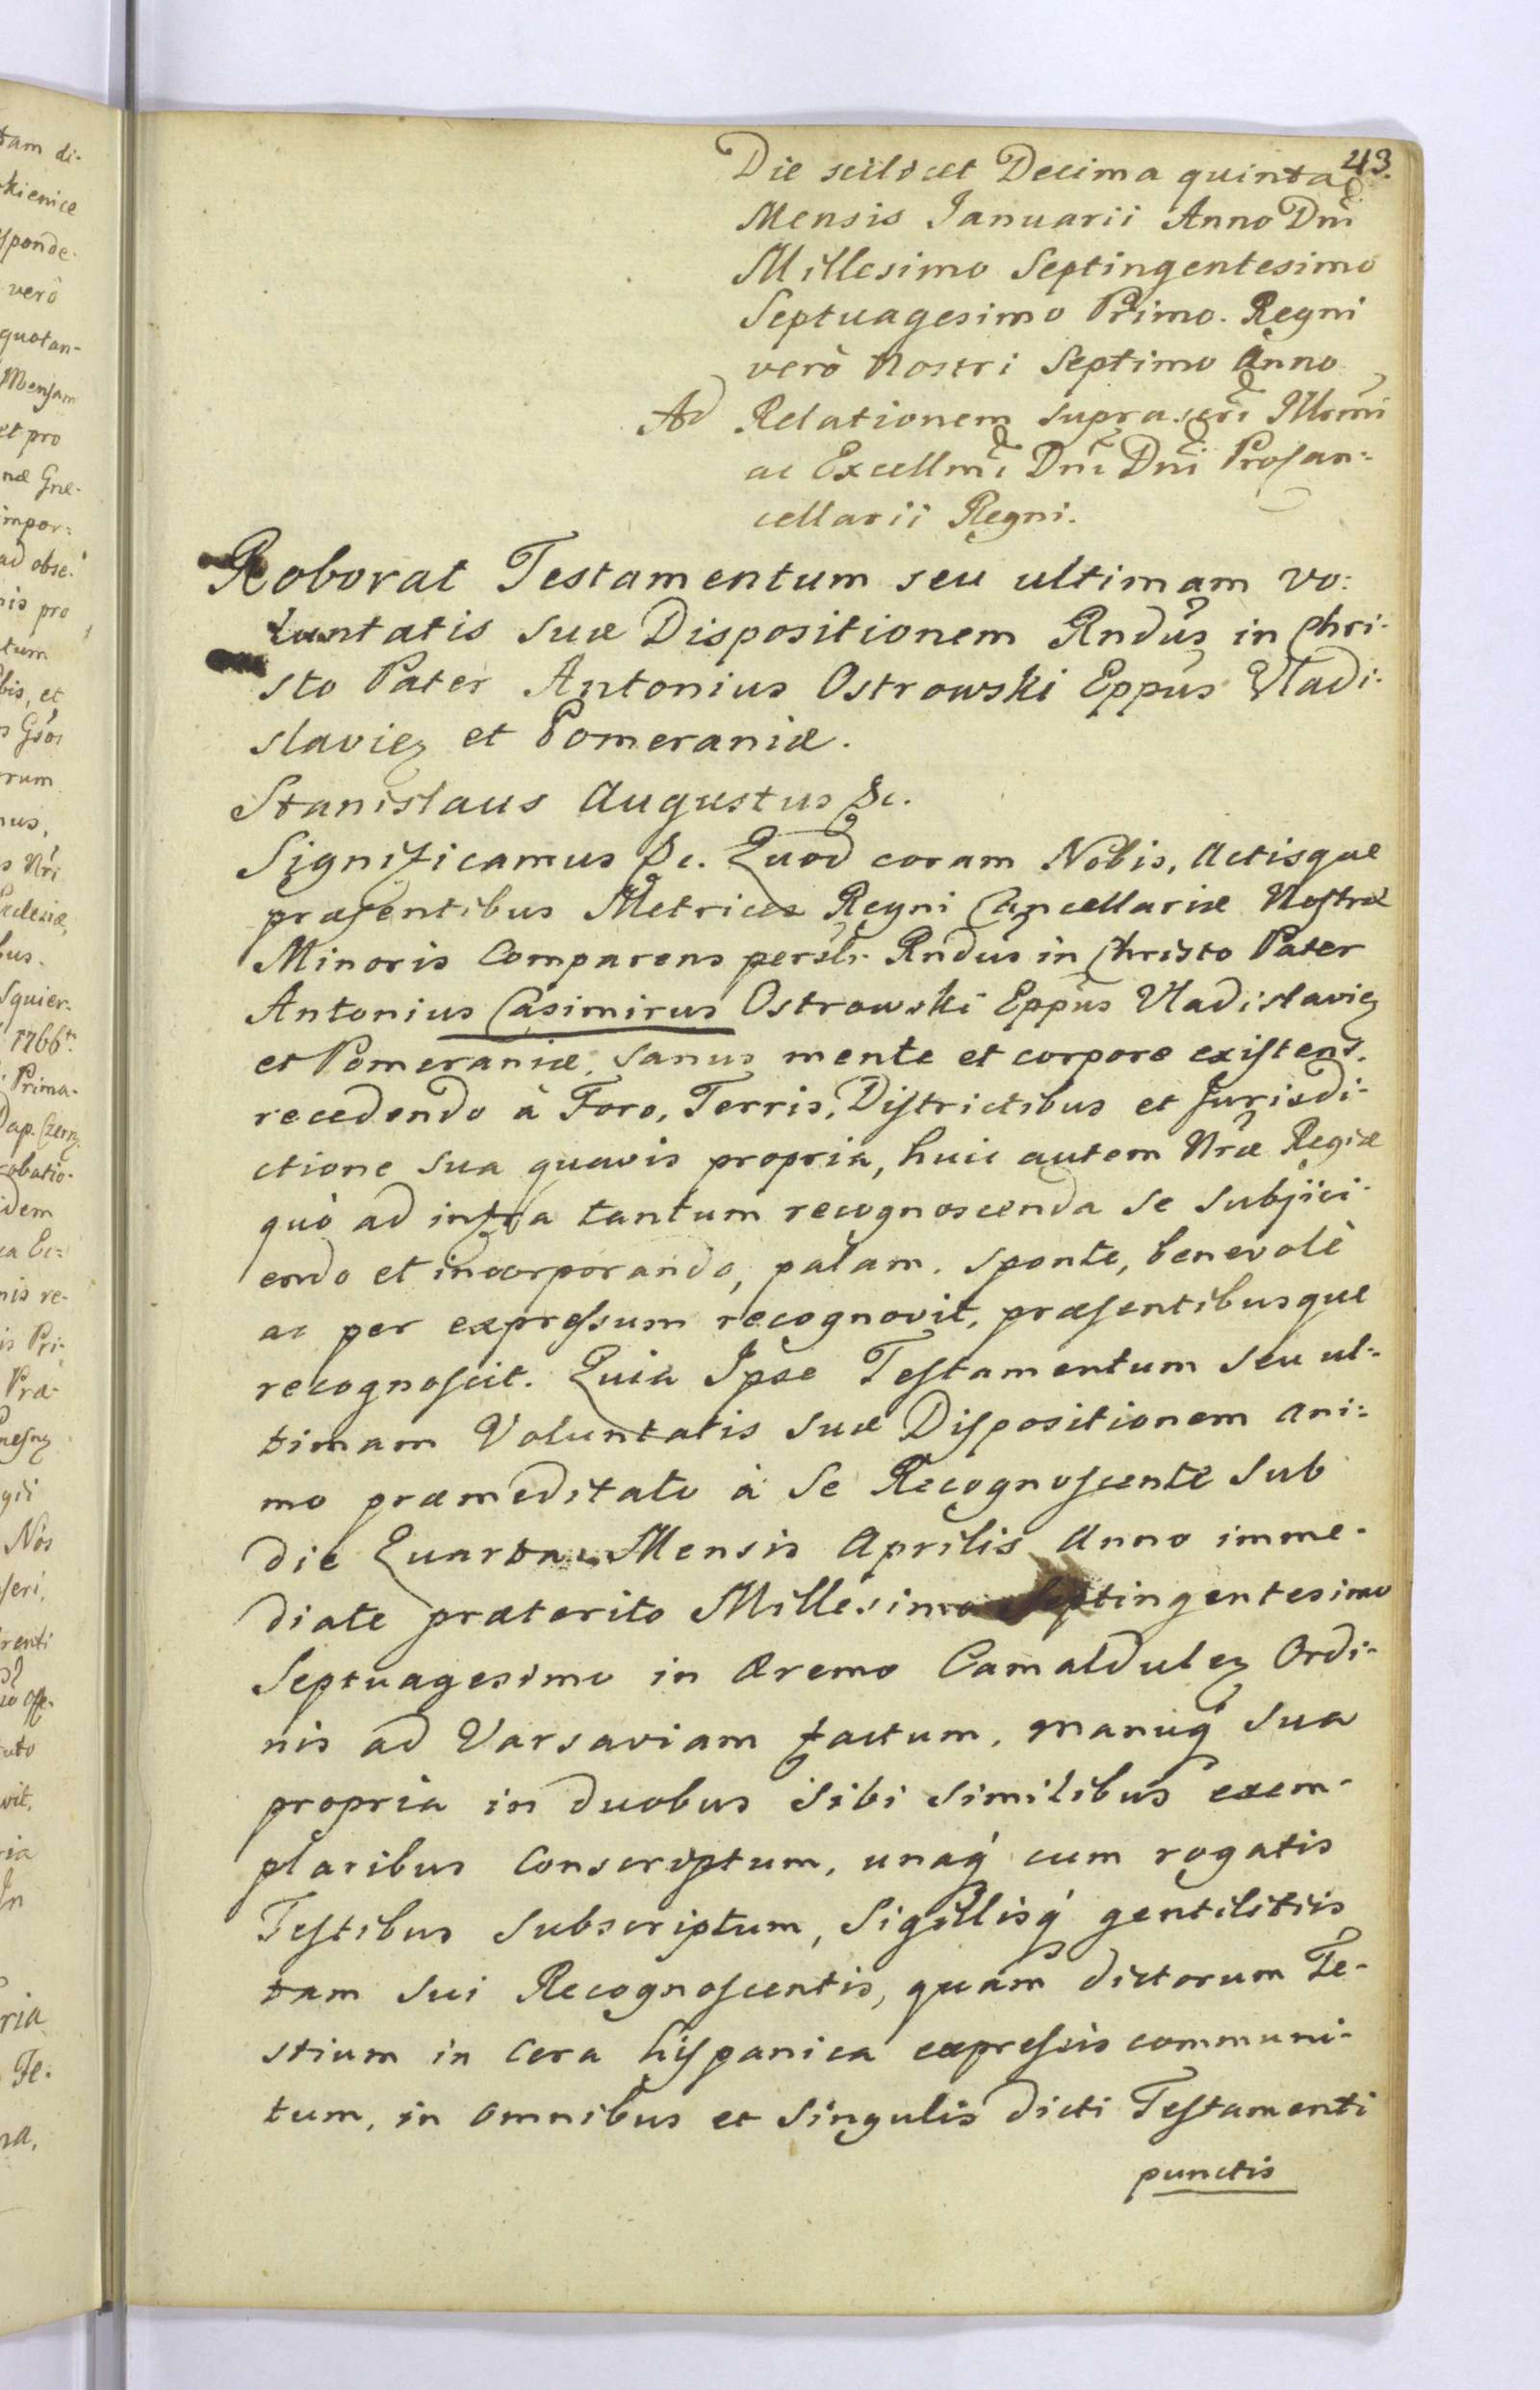 43.
Die scilicet Decima quinta
Mensis Januarii Anno Dni
Millesimo Septingentesimo
Septuagesimo Primo. Regni
verò Nostri Septimo Anno
Ad Relationem suprascri Illmi
ac Excellmi Dni Dni Procan=
cellarii Regni.
Roborat Testamentum seu ultimam vo:
luntatis suæ Dispositionem Rndus in Chri-
sto Pater Antonius Ostrowski Eppus Vladi-
slavien et Pomeraniæ.
Stanislaus Augustus &c.
Significamus &c. Quod coram Nobis, Actisque
præsentibus Metrices Regni Cancellariæ Nostræ
Minoris Comparens perslr Rndus in Christo Pater
Antonius Casimirus Ostrowski Eppus Vladislavien
et Pomeraniæ, sanus mente et corpore existens,
recedendo à Foro, Terris, Districtibus et Jurisdi-
ctione sua quavis propria, huic autem Nræ Regiæ
quò ad infra tantum recognoscenda se subjici-
endo et incorporando, palam, sponte, benevolè
ac per expressum recognovit, præsentibusque
recognoscit. Quia Ipse Testamentum seu ul=
timam Voluntatis suæ Dispositionem ani=
mo præmeditato à Se Recognoscente sub
die Quarta Mensis Aprilis Anno imme-
diate præterito Millesimo Septingentesimo
Septuagesimo in Æremo Camaldulen Ordi-
nis ad Varsaviam factum, manuq sua
propria in duobus sibi similibus exem-
plaribus Conscriptum, unaq cum rogatis
Testibus subscriptum, Sigillisq gentilitiis
tam sui Recognoscentis, quam dictorum Te-
stium in cera hispanica expressis communi-
tum, in omnibus et singulis dicti Testamenti
punctis